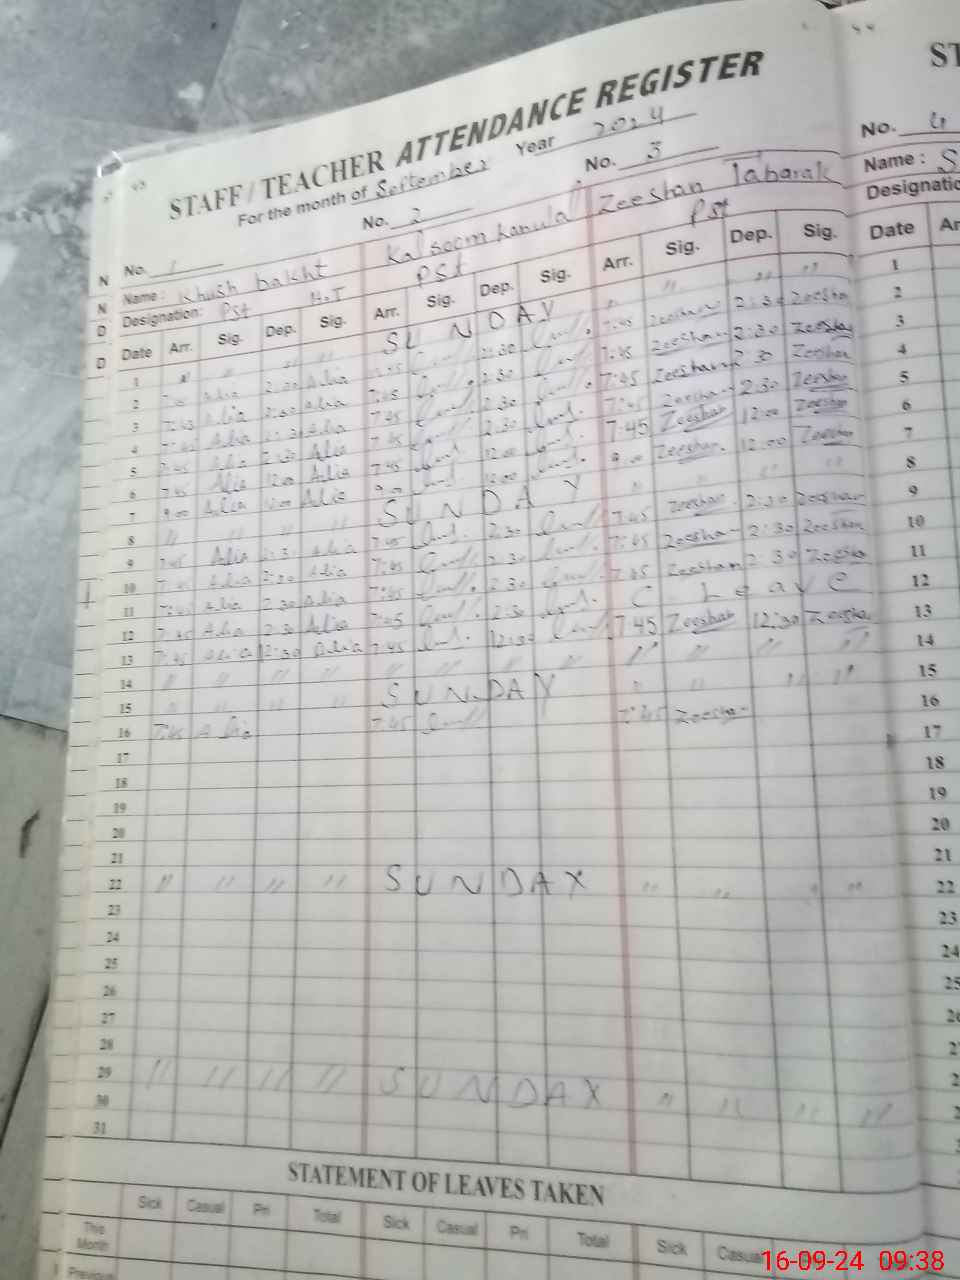 43
44
STAFF / TEACHER ATTENDANCE REGISTER
For the month of September Year 2024
No. 1 No. 2 No. 3
Name : Khush bakht Kalsoom kanwal Zeeshan Tabarak
Designation: Pst H.T Pst Pst
Date Arr. Sig. Dep. Sig. Arr. Sig. Dep. Sig. Arr. Sig. Dep. Sig.
1 " " " " SUNDAY " " " "
2 Alia 2:30 Alia 7:45 2:30 7:45 Zeeshan 2:30 Zeeshan
3 7:45 Alia 2:30 Alia 7:45 2:30 7:45 Zeeshan 2:30 Zeeshan
4 7:45 Alia 2:30 Alia 7:45 2:30 7:45 Zeeshan 2:30 Zeeshan
5 7:45 Alia 2:30 Alia 7:45 2:30 7:45 Zeeshan 2:30 Zeeshan
6 7:45 Alia 12:00 Alia 7:45 12:00 7:45 Zeeshan 12:00 Zeeshan
7 9:00 Alia 12:00 Alia 9:00 12:00 9:00 Zeeshan. 12:00 Zeeshan
8 " " " " SUNDAY " " " "
9 7:45 Alia 2:30 Alia 7:45 2:30 7:45 Zeeshan 2:30 Zeeshan
10 7:45 Alia 2:30 Alia 7:45 2:30 7:45 Zeeshan 2:30 Zeeshan
11 7:45 Alia 2:30 Alia 7:45 2:30 7:45 Zeeshan 2:30 Zeeshan
12 7:45 Alia 2:30 Alia 7:45 2:30 C Leave
13 7:45 Alia 12:30 Alia 7:45 12:30 7:45 Zeeshan 12:30 Zeeshan
14 " " " " " " " " " " " "
15 " " " " SUNDAY " " " "
16 7:45 Alia 7:45 7:45 Zeeshan
17
18
19
20
21
22 " " " " SUNDAY " " " "
23
24
25
26
27
28
29 " " " " SUNDAY " " " "
30
31
STATEMENT OF LEAVES TAKEN
Sick Casual Pri Total Sick Casual Pri Total Sick Casual
This Month
Previous
ST
No. 4
Name : S
Designatio
Date Ar
1
2
3
4
5
6
7
8
9
10
11
12
13
14
15
16
17
18
19
20
21
22
23
24
25
N
N
D
D
16-09-24 09:38